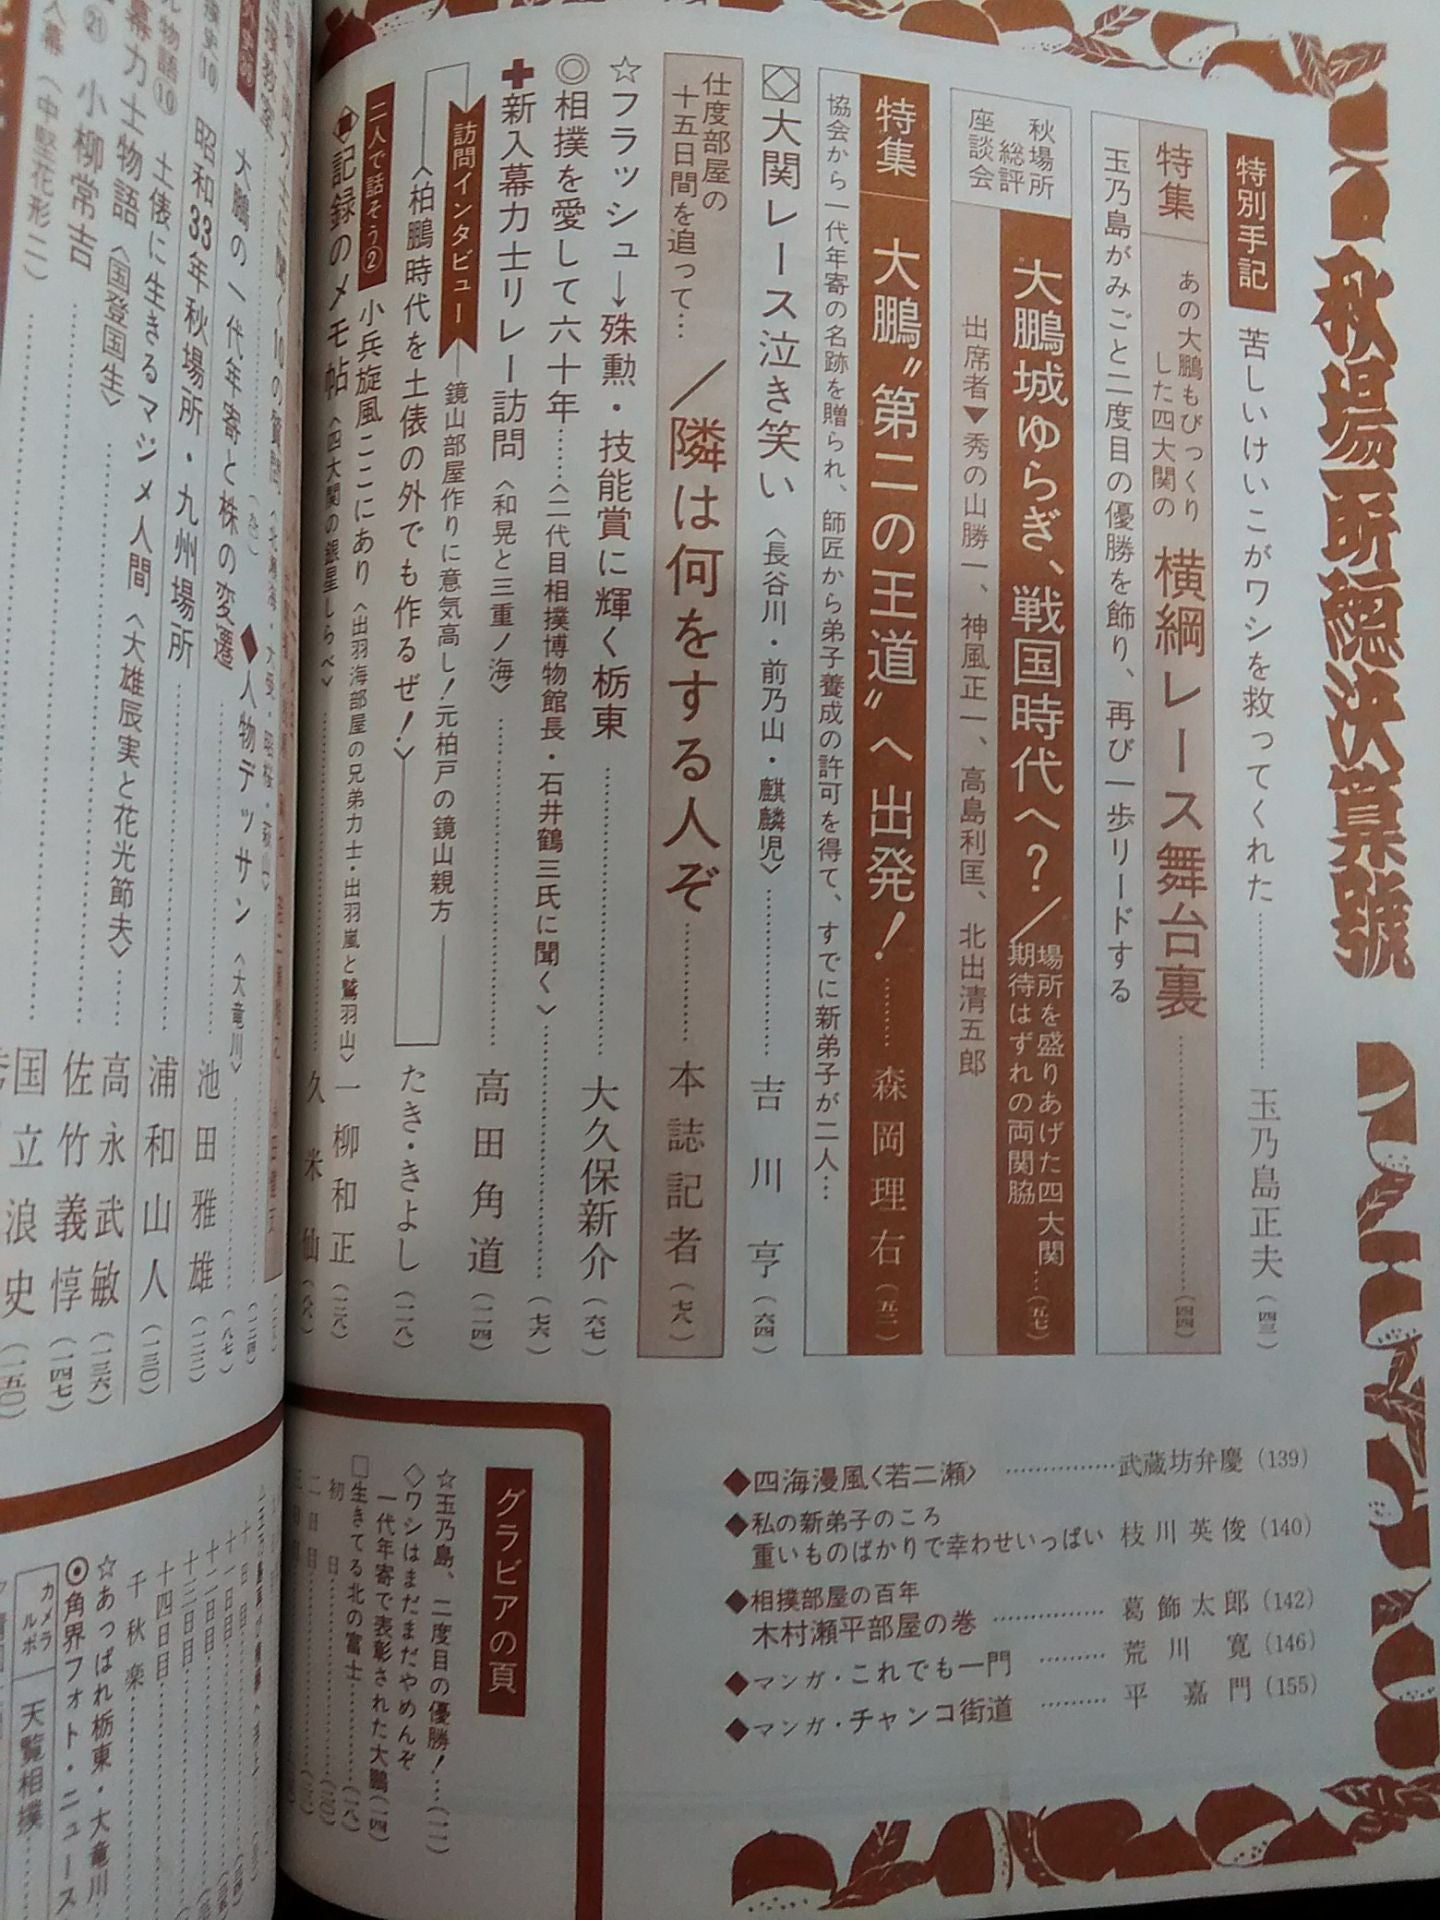 秋場所総決算號
特別手記
苦しいけいこがワシを救ってくれた…………玉乃島正夫(四三)
特集
あの大鵬もびっくり
した四大関の
横綱レース舞台裏…………(四四)
玉乃島がみごと二度目の優勝を飾り、再び一歩リードする
秋場所
総評
座談会
大鵬城ゆらぎ、戦国時代へ?/
場所を盛りあげた四大関
期待はずれの両関脇…(五七)
出席者▼秀の山勝一、神風正一、高島利匡、北出清五郎
特集
大鵬〝第二の王道〟へ出発!………森岡理右(五二)
協会から一代年寄の名跡を贈られ、師匠から弟子養成の許可を得て、すでに新弟子が二人…
◇大関レース泣き笑い〈長谷川・前乃山・麒麟児〉…………吉川亨(六四)
仕度部屋の
十五日間を追って…
/隣は何をする人ぞ…………本誌記者(七八)
☆フラッシュ→殊勲・技能賞に輝く栃東…………大久保新介(六七)
◎相撲を愛して六十年……〈二代目相撲博物館長・石井鶴三氏に聞く〉…………(七六)
✚新入幕力士リレー訪問〈和晃と三重ノ海〉…………高田角道(一二四)
訪問インタビュー
鏡山部屋作りに意気高し!元柏戸の鏡山親方
〈柏鵬時代を土俵の外でも作るぜ!〉
たき・きよし(一二八)
二人で話そう②
小兵旋風ここにあり〈出羽海部屋の兄弟力士・出羽嵐と鷲羽山〉一柳和正
記録のメモ帖〈四大関の銀星しらべ〉…………久米仙
大鵬の一代年寄と株の変遷…………池田雅雄(一二二)
◆人物デッサン〈大竜川〉…………(八七)
昭和33年秋場所・九州場所…………浦和山人(一三〇)
土俵に生きるマジメ人間〈大雄辰実と花光節夫〉……高永武敏(一三六)
幕力士物語〈国登国生〉…………佐竹義惇(一四七)
㉑ 小柳常吉…………国立浪史(一五〇)
人幕(中堅花形二)
◆四海漫風〈若二瀬〉……………武蔵坊弁慶(139)
◆私の新弟子のころ
重いものばかりで幸わせいっぱい 枝川英俊(140)
◆相撲部屋の百年
木村瀬平部屋の巻……………葛飾太郎(142)
◆マンガ・これでも一門………荒川 寛(146)
◆マンガ・チャンコ街道………平 嘉門(155)
グラビアの頁
☆玉乃島、二度目の優勝!…(一一)
◇ワシはまだまだやめんぞ
一代年寄で表彰された大鵬(一四)
□生きてる北の富士…………(一八)
初日…………(二〇)
二日目…………
三日目…………
十日目…………
十一日目…………
十二日目…………
十三日目…………
十四日目…………
千秋楽…………
☆あっぱれ栃東・大竜川
◉角界フォト・ニュース
カメラ
ルポ
天覧相撲……